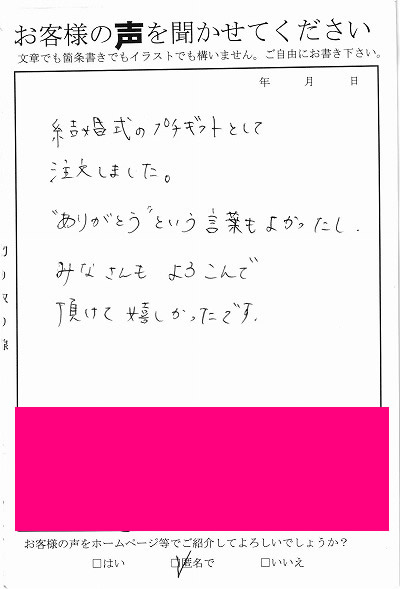 お客様の声を聞かせてください
文章でも箇条書きでもイラストでも構いません。ご自由にお書き下さい。
年 月 日
結婚式のプチギフトとして
注文しました。
"ありがとう"という言葉もよかったし、
みなさんも よろこんで
頂けて嬉しかったです。
お客様の声をホームページ等でご紹介してよろしいでしょうか?
□はい □匿名で □いいえ